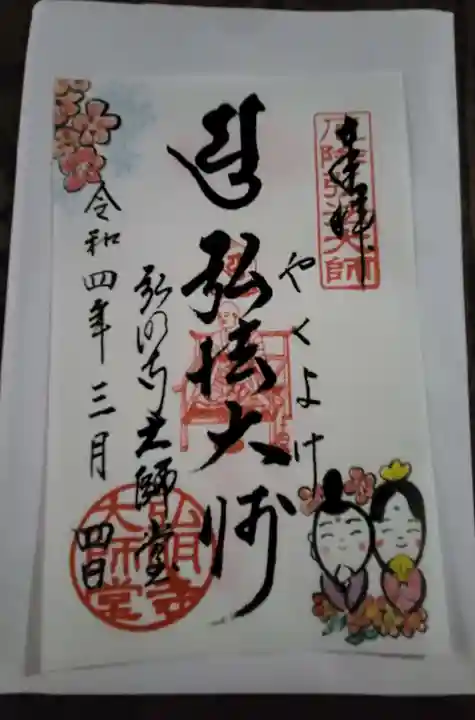 奉拝
厄除弘法大師
やくよけ
弘法大師
弘明寺大師堂
令和四年三月
四日
弘明寺
大師堂